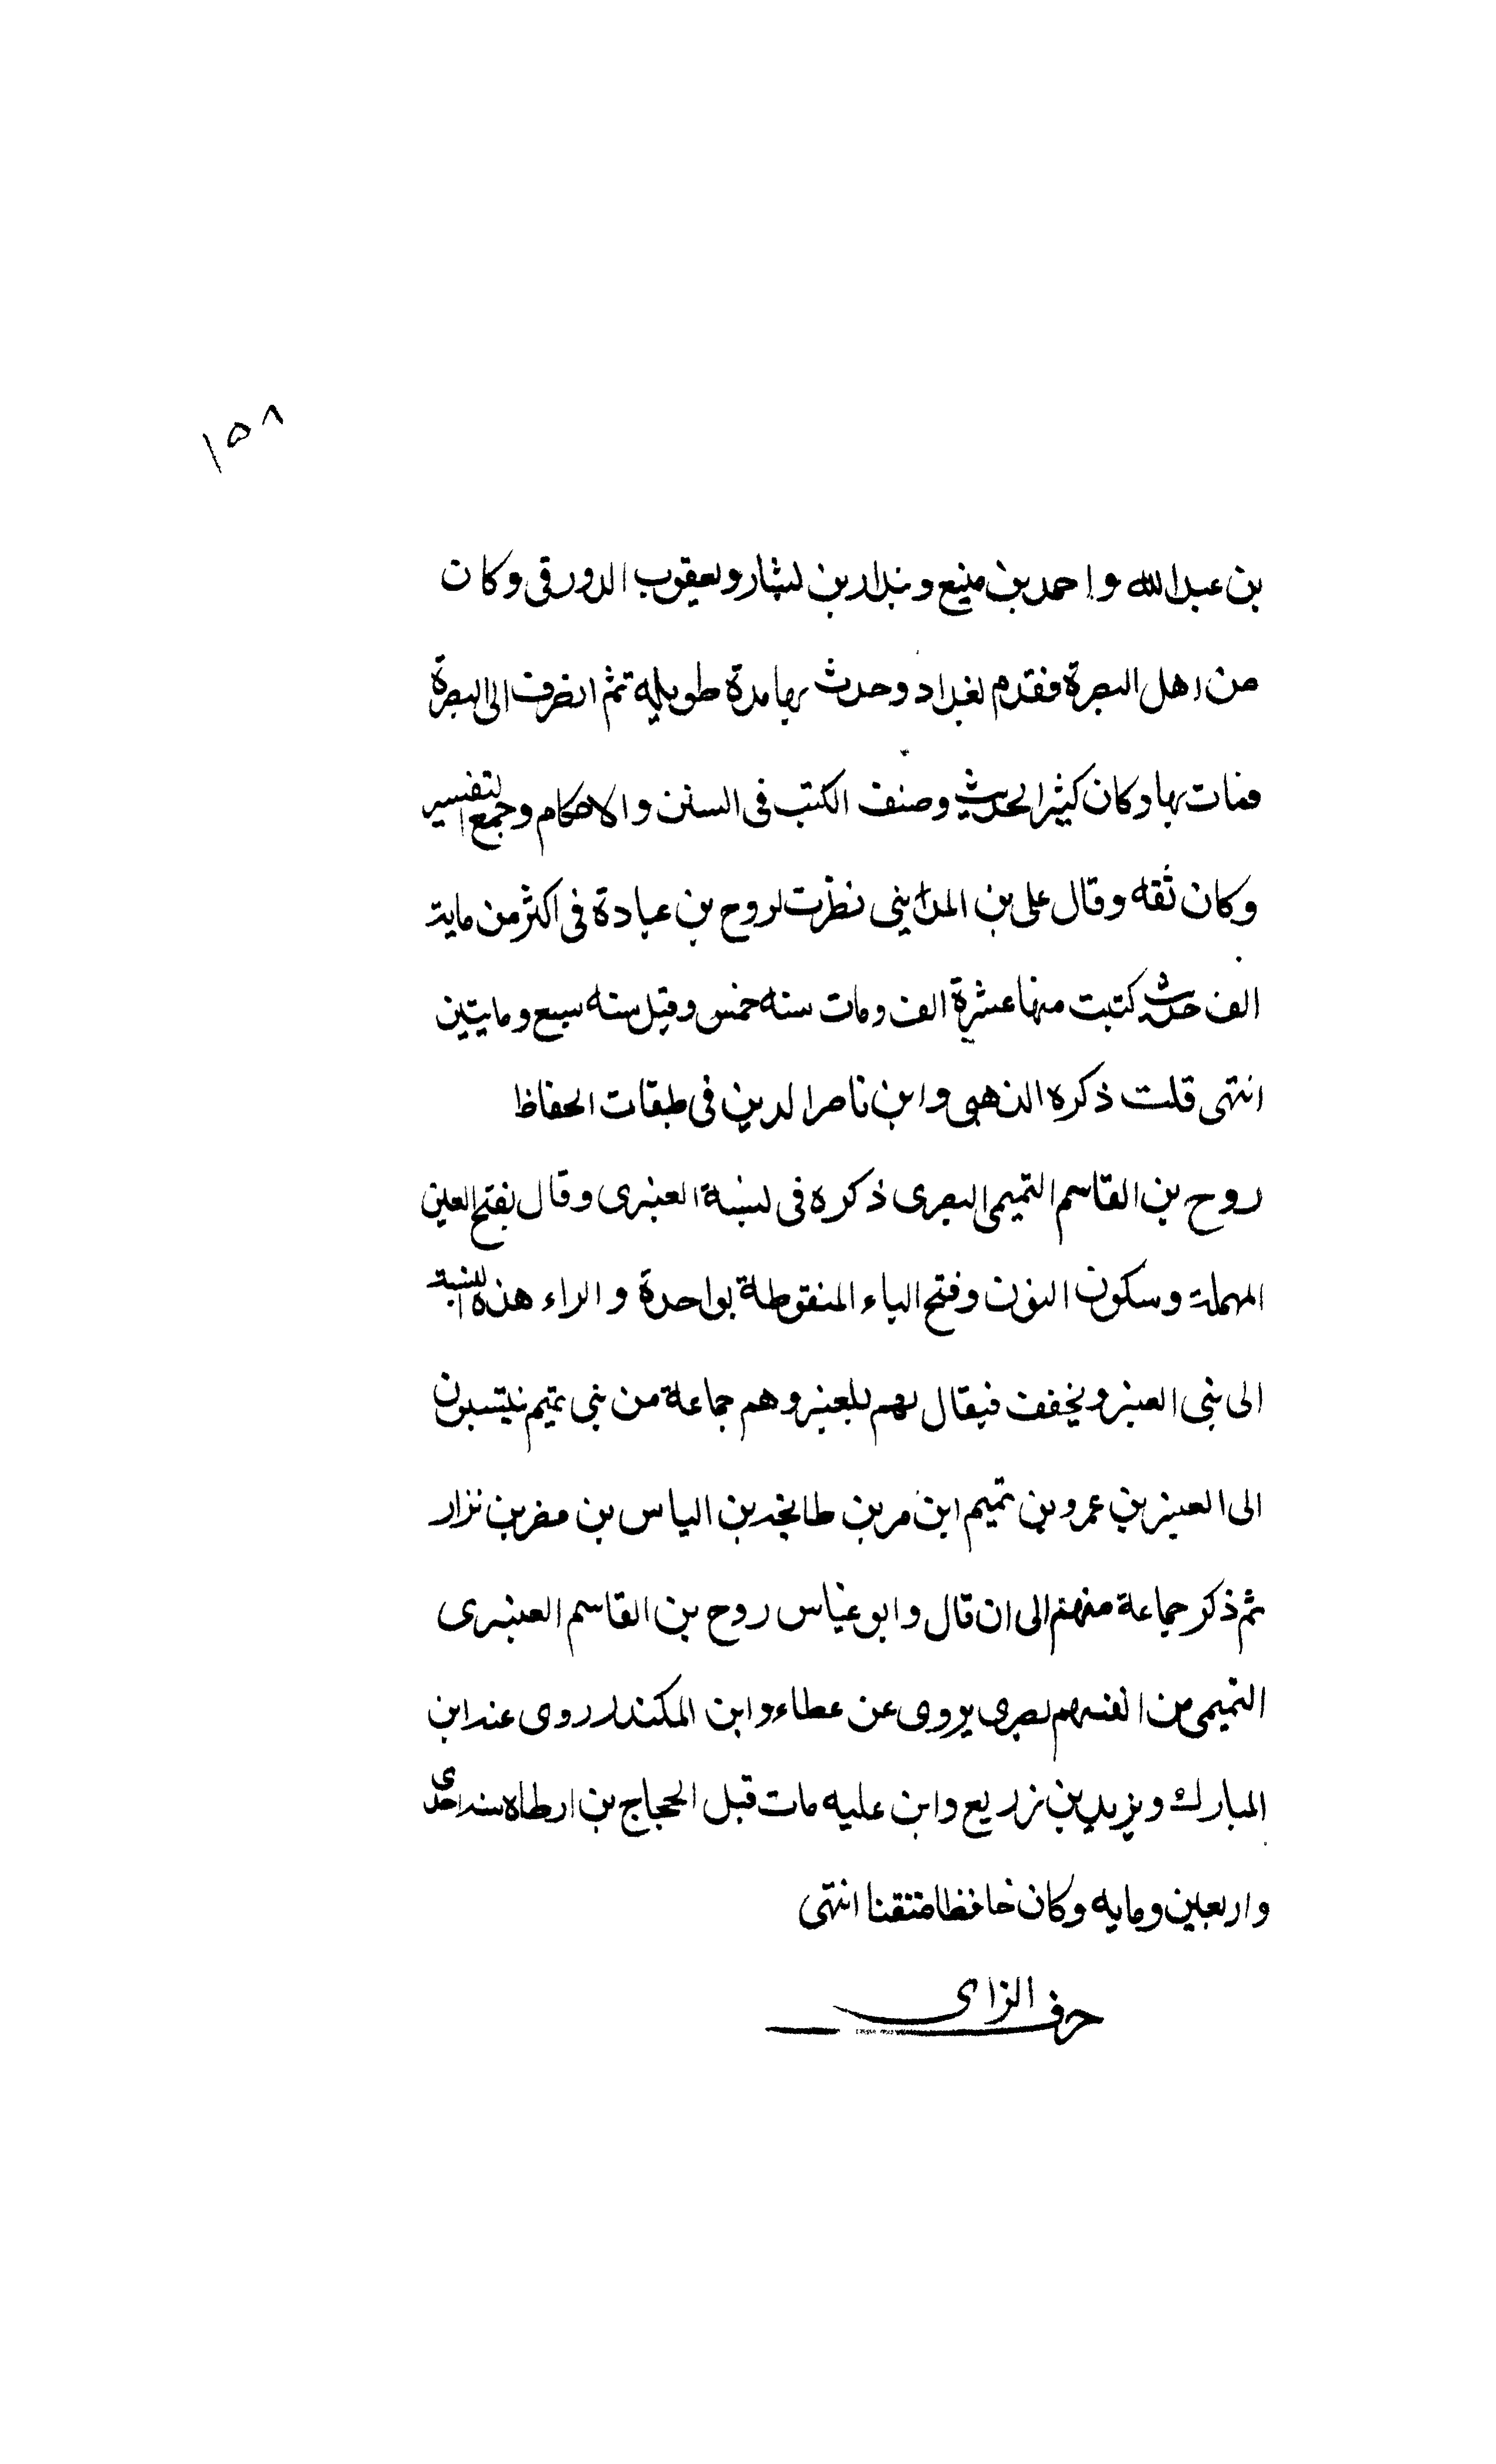 ١٥٨
بن عبد الله واحمد بن منيع وبندار بن بشار ويعقوب الدورقى وكان
من اهل البصرة فقدم بغداد وحدث بها مدة طويله ثم انصرف الى البصرة
فمات بها وكان كثير الحديث وصنف الكتب فى السنن والاحكام وجمع التفسير
وكان ثقه وقال على بن المداينى نظرت لروح بن عبادة فى اكثر من ماية
الف حديث كتبت منها عشرة الف ومات سنه خمس وقيل سنه سبع ومايتين
انتهى قلت ذكره الذهبى وابن ناصر الدين فى طبقات الحفاظ
روح بن القاسم التميمى البصرى ذكره فى نسبة العنبرى وقال بفتح العين
المهملة وسكون النون وفتح الباء المنقوطة بواحدة والراء هذه النسبة
الى بنى العنبر ويخفف فيقال لهم بلعنبر وهم جماعة من بنى تميم ينتسبون
الى العنبر بن عمرو بن تميم ابن مر بن طابخة بن الياس بن مضر بن نزار
ثم ذكر جماعة منهم الى ان قال وابو غياس روح بن القاسم العنبرى
التميمى من انفسهم بصرى يروى عن عطاء وابن المكندر روى عنه ابن
المبارك ويزيد بن زريع وابن عليه مات قبل الحجاج بن ارطاه سنة احدى
واربعين ومايه وكان حافظا متقنا انتهى
حرف الزاى